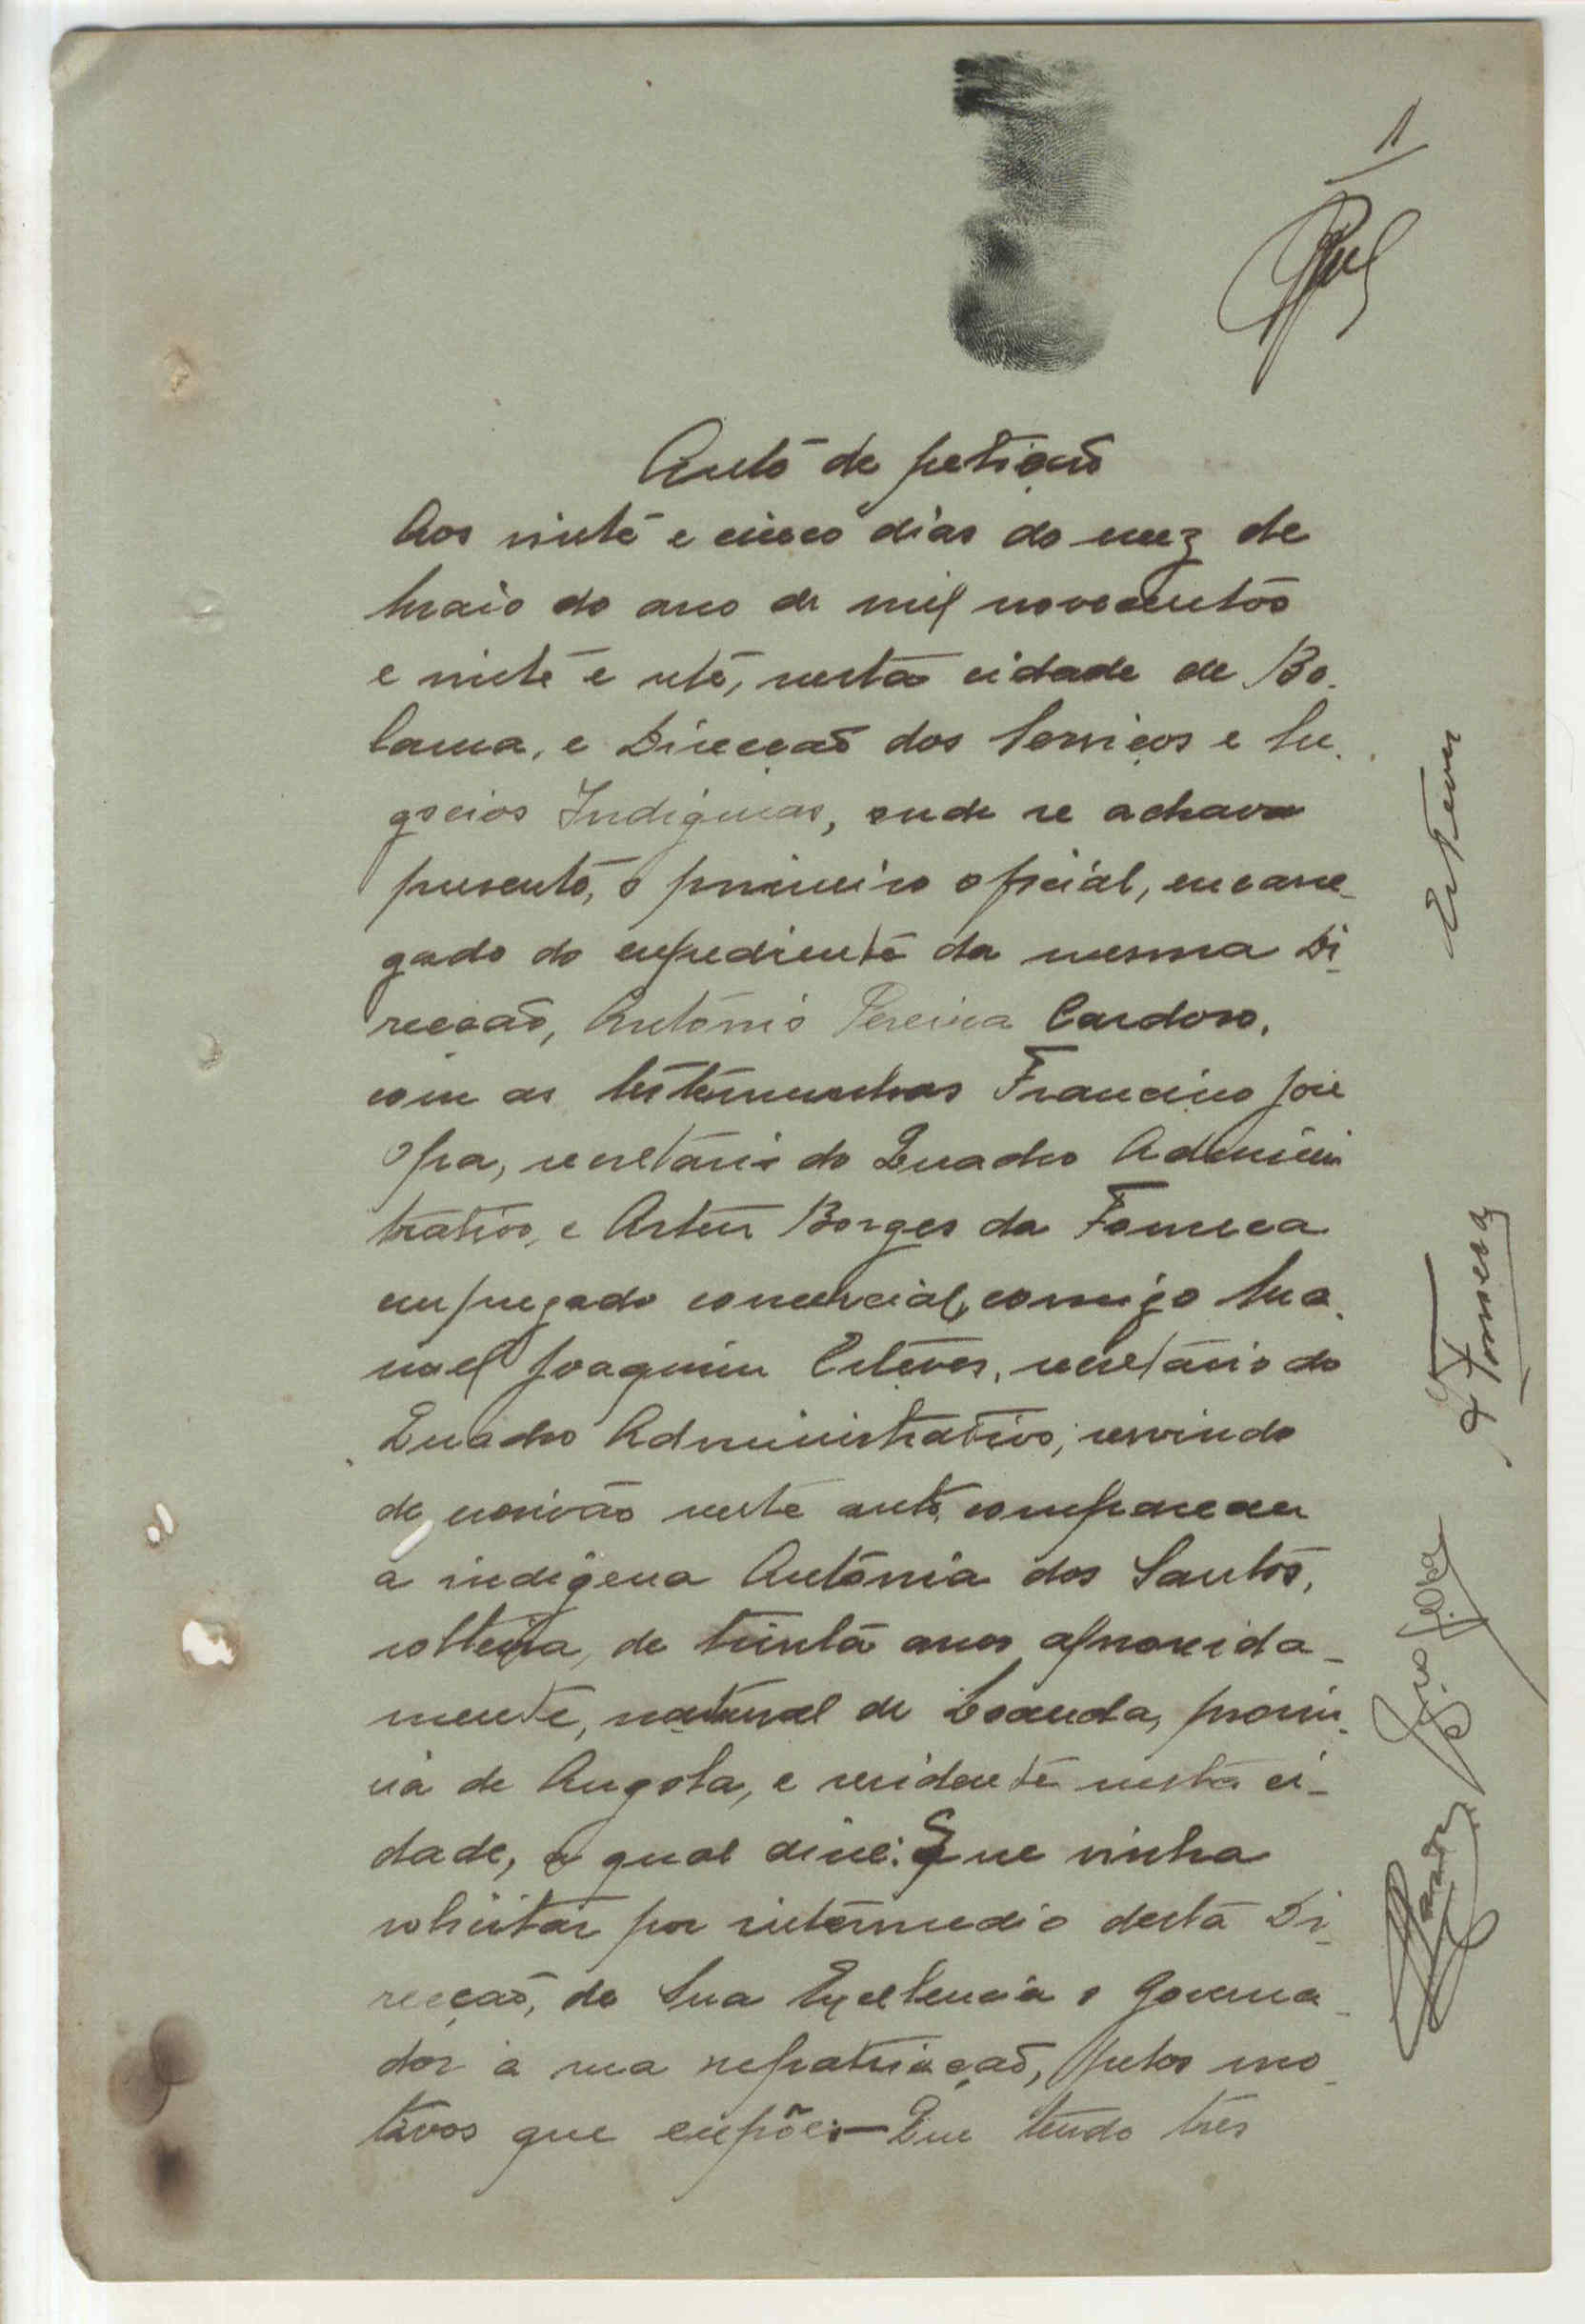 1
Auto de petição
Aos vinte e cinco dias do mez de
Maio do ano de mil novecentos
e vinte e sete, nesta cidade de Bo-
lama, e Direcção dos Serviços e Ne-
gocios Indiginas, onde se achava
presente, o primeiro oficial, encarre-
gado do expediente da mesma Di-
recção, António Pereira Cardoso,
com as testemunhas Francisco José
secretário do Quadro Adminis
trativo, e Artur Borges da Fonseca
empregado comercial, comigo Ma-
nuel Joaquim Esteves, secretário do
Quadro Administrativo, servindo
de escrivão neste auto, compareceu
a indígena Antónia dos Santos,
solteira, de trinta anos aproxida-
mente, natural de Loanda, provin-
cia de Angola, e residente nesta ci-
dade, a qual disse: Que vinha
solicitar por intermedio desta Di-
recção, de Sua Excelencia o Governa-
dor a sua repatriação, pelos mo-
tivos que expõe:— Que tendo três
Esteves
Fonseca